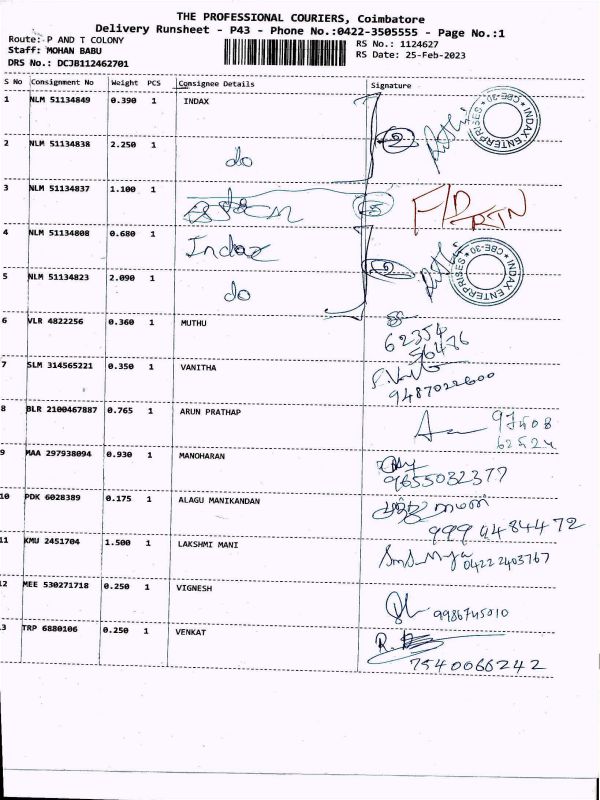 THE PROFESSIONAL COURIERS, Coimbatore
Delivery Runsheet - P43 - Phone No.:0422-3505555 - Page No.:1
Route: P AND T COLONY
RS No.: 1124627
Staff: MOHAN BABU
RS Date: 25-Feb-2023
DRS No.: DCJB112462701
S No Consignment No Weight PCS Consignee Details Signature
1 NLM 51134849 0.390 1 INDAX
INDAX ENTERPRISES * CBE-30 *
2 NLM 51134838 2.250 1 do
3 NLM 51134837 1.100 1 F/D RTN
4 NLM 51134808 0.680 1 Indax
INDAX ENTERPRISES * CBE-30 *
5 NLM 51134823 2.090 1 do
6 VLR 4822256 0.360 1 MUTHU 62354
56476
7 SLM 314565221 0.350 1 VANITHA
9487022600
8 BLR 2100467887 0.765 1 ARUN PRATHAP 97508
62524
9 MAA 297938094 0.930 1 MANOHARAN
9655032377
10 PDK 6028389 0.175 1 ALAGU MANIKANDAN
9994484472
11 KMU 2451704 1.500 1 LAKSHMI MANI 04222403767
12 MEE 530271718 0.250 1 VIGNESH
9986745010
3 TRP 6880106 0.250 1 VENKAT R.
7540066242